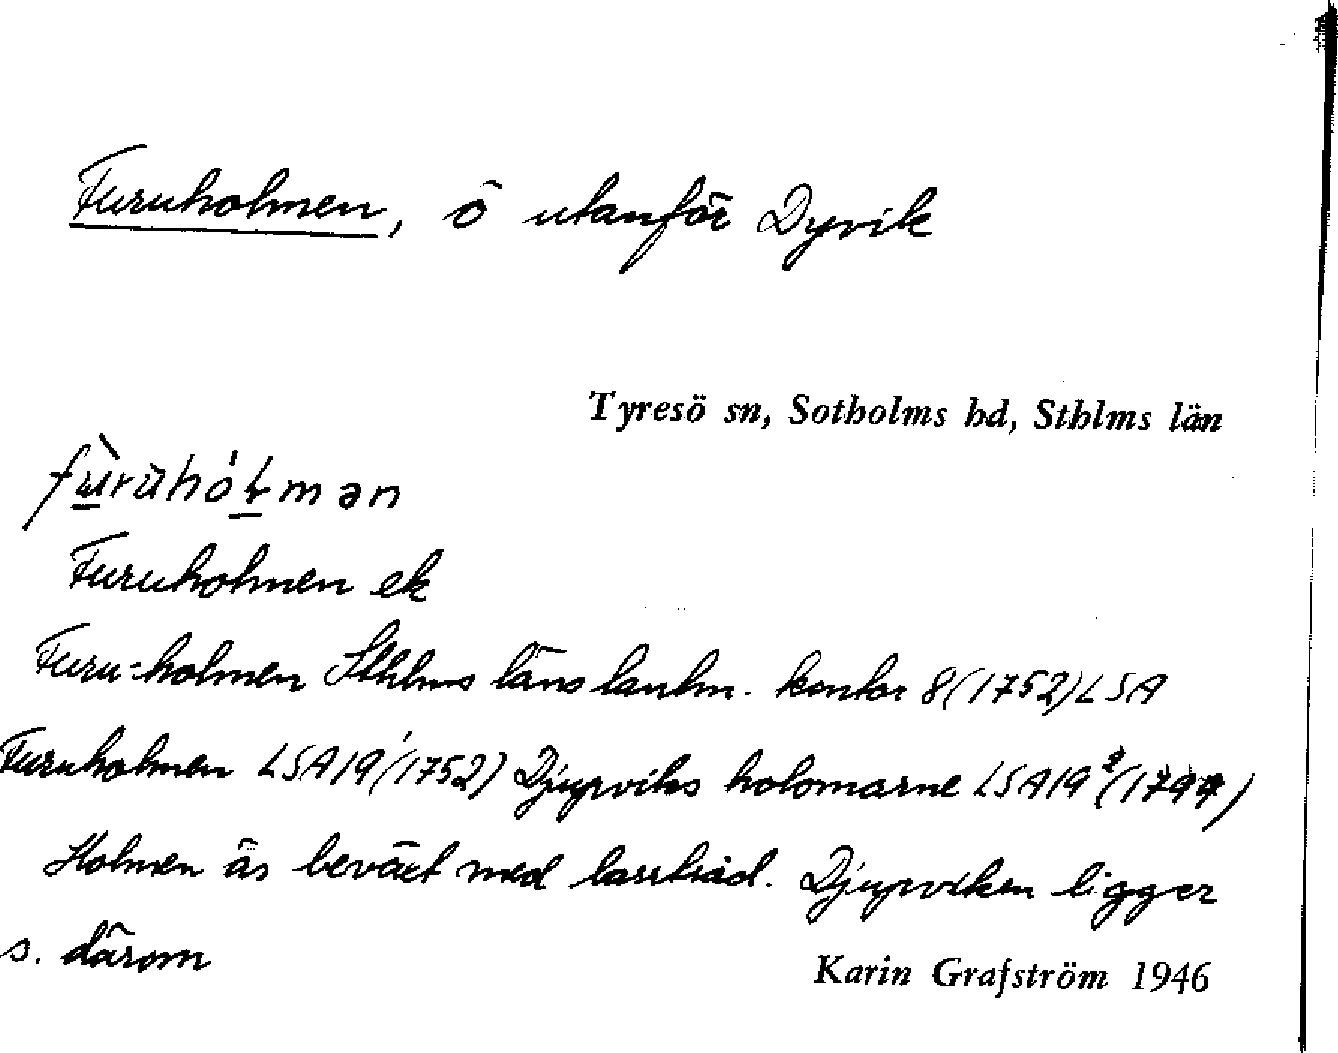 Furuholmen, ö utanför Dyvik
Tyresö sn, Sotholms hd, Sthlms län
fùruhólmən
Furuholmen ek
Furu-holmen Sthlms läns lantm. kontor 8(1752) LSA
Furuholmen LSA 19¹(1752) Djupviks holmarne LSA 19²(1799)
Holmen är beväxt med barrträd. Djupviken ligger
s. därom
Karin Grafström 1946